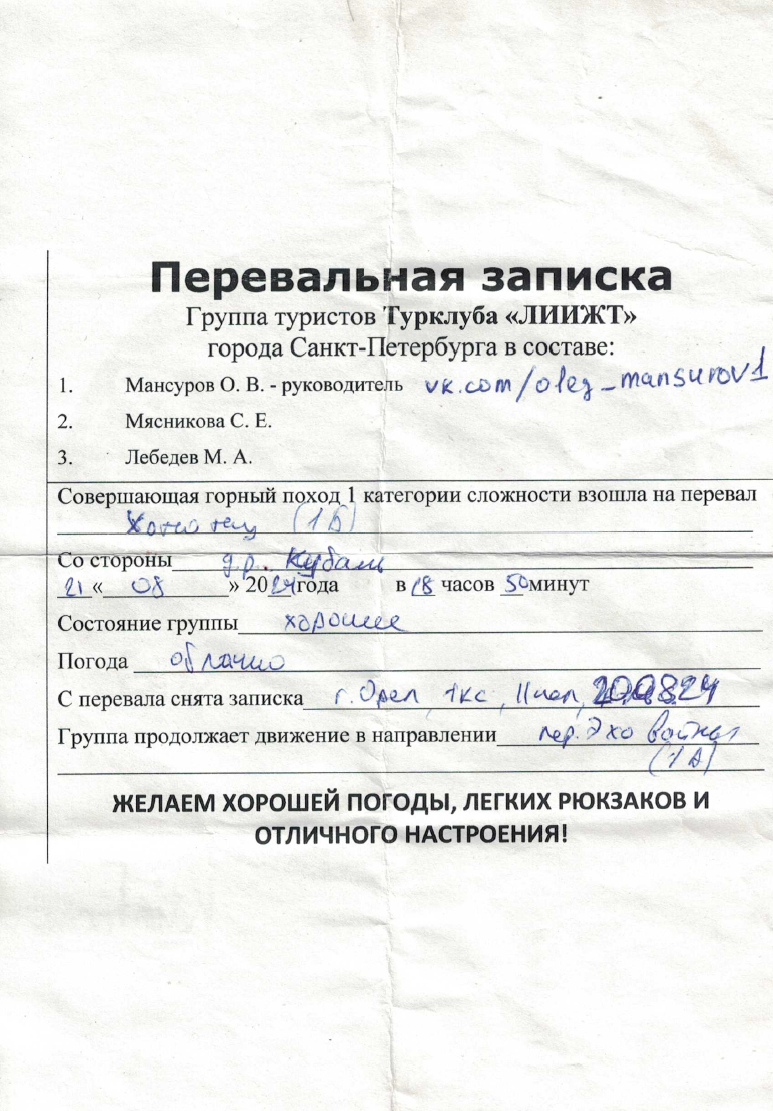 Перевальная записка
Группа туристов Турклуба «ЛИИЖТ»
города Санкт-Петербурга в составе:
1. Мансуров О. В. - руководитель vk.com/oleg_mansurov1
2. Мясникова С. Е.
3. Лебедев М. А.
Совершающая горный поход 1 категории сложности взошла на перевал
Хотютец (1Б)
Со стороны д.р. Кубань
21 « 08 » 2024 года в 18 часов 50 минут
Состояние группы хорошее
Погода облачно
С перевала снята записка г. Орел, 1кс, 11чел, 200824
Группа продолжает движение в направлении пер. Эхо войны
(1А)
ЖЕЛАЕМ ХОРОШЕЙ ПОГОДЫ, ЛЕГКИХ РЮКЗАКОВ И
ОТЛИЧНОГО НАСТРОЕНИЯ!